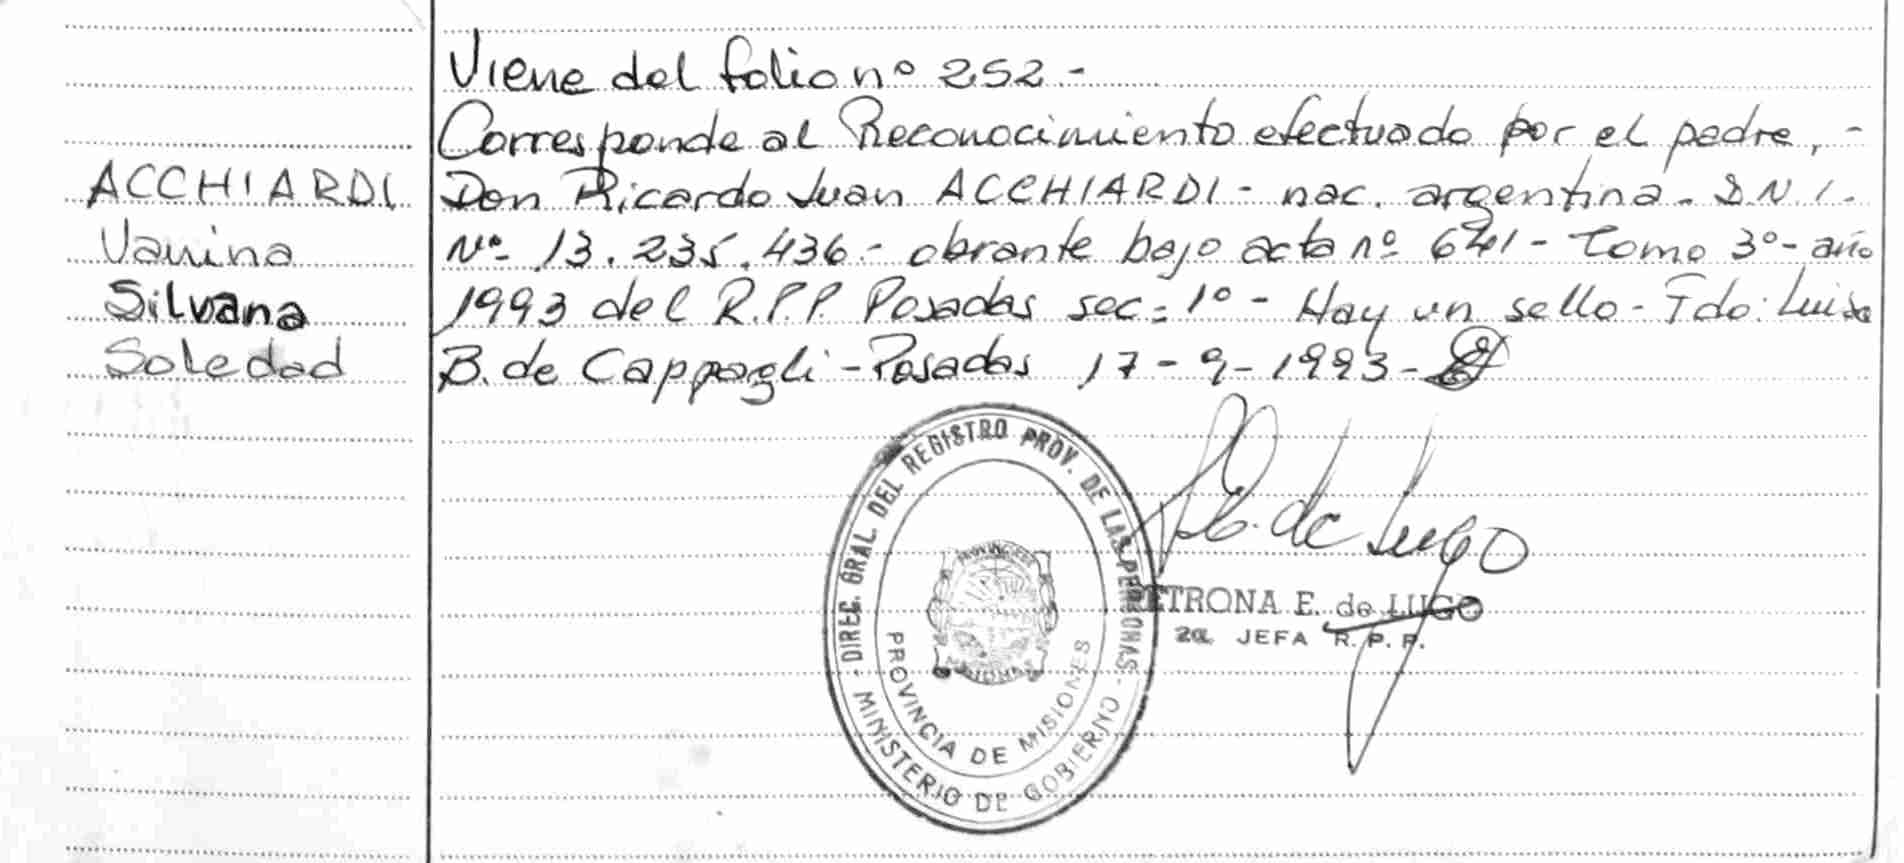 Viene del folio nº 252 -
Corresponde al Reconocimiento efectuado por el padre, -
ACCHIARDI
Don Ricardo Juan ACCHIARDI - nac. argentina - D.N.I. -
Vanina
Nº 13.235.436 - obrante bajo acta nº 641 - Tomo 3º - año
Silvana
1993 del R.P.P. Posadas sec: 1º - Hay un sello - Fdo: Luisa
Soledad
B. de Cappagli - Posadas 17 - 9 - 1993 -
DIREC. GRAL. DEL REGISTRO PROV. DE LAS PERSONAS -
MINISTERIO DE GOBIERNO -
PROVINCIA DE MISIONES
E. de Lugo
PETRONA E. de LUGO
2a. JEFA R. P. P.